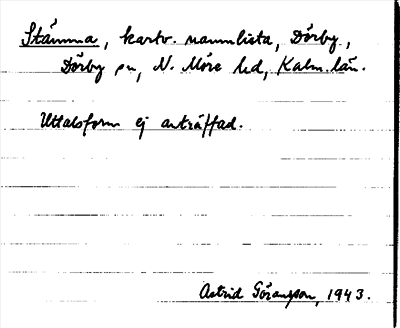 Stämma, kartv. namnlista, Dörby,
Dörby sn, N. Möre hd, Kalm. län.
Uttalsform ej anträffad.
Astrid Göransson, 1943.